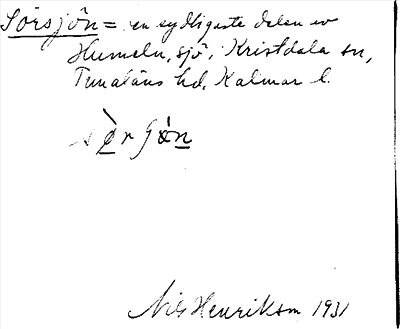 Sörsjön = en sydligaste delen av
Humeln, sjö, Kristdala sn,
Tunaläns hd, Kalmar l.
Nils Henrikson 1931